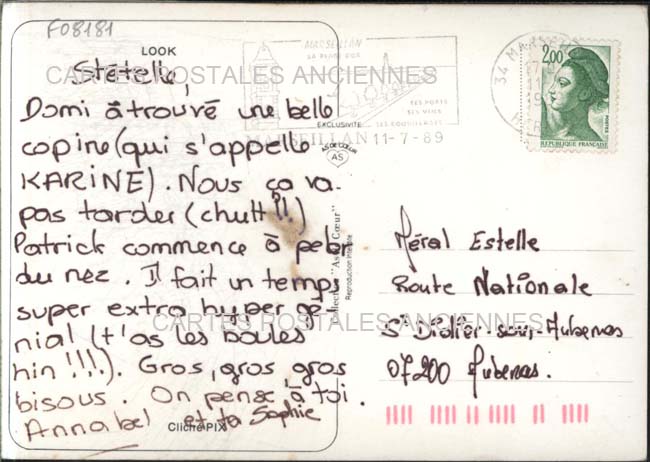 F08181
LOOK
Stételle,
Domi à trouvé une belle
copine (qui s'appelle
KARINE). Nous ça va
pas tarder (chutt !!)
Patrick commence à peler
du nez. Il fait un temps
super extra hyper gé-
nial (t'as les boules
hin !!!). Gros, gros gros
bisous. On pense à toi.
Annabel et ta Sophie
Cliché PIX
MARSEILLAN
SA PLAGE D'OR
SES PORTS
SES VINS
SES COQUILLAGES
MARSEILLAN 11-7-89
34 MARSEILLAN
2,00
POSTES
REPUBLIQUE FRANÇAISE
EXCLUSIVITE
AS DE CŒUR
AS
Collection "As de Cœur"
Reproduction Interdite
Méral Estelle
Route Nationale
St Didier-sous-Aubenas
07200 Aubenas.
CARTES POSTALES ANCIENNES
CARTES POSTALES ANCIENNES